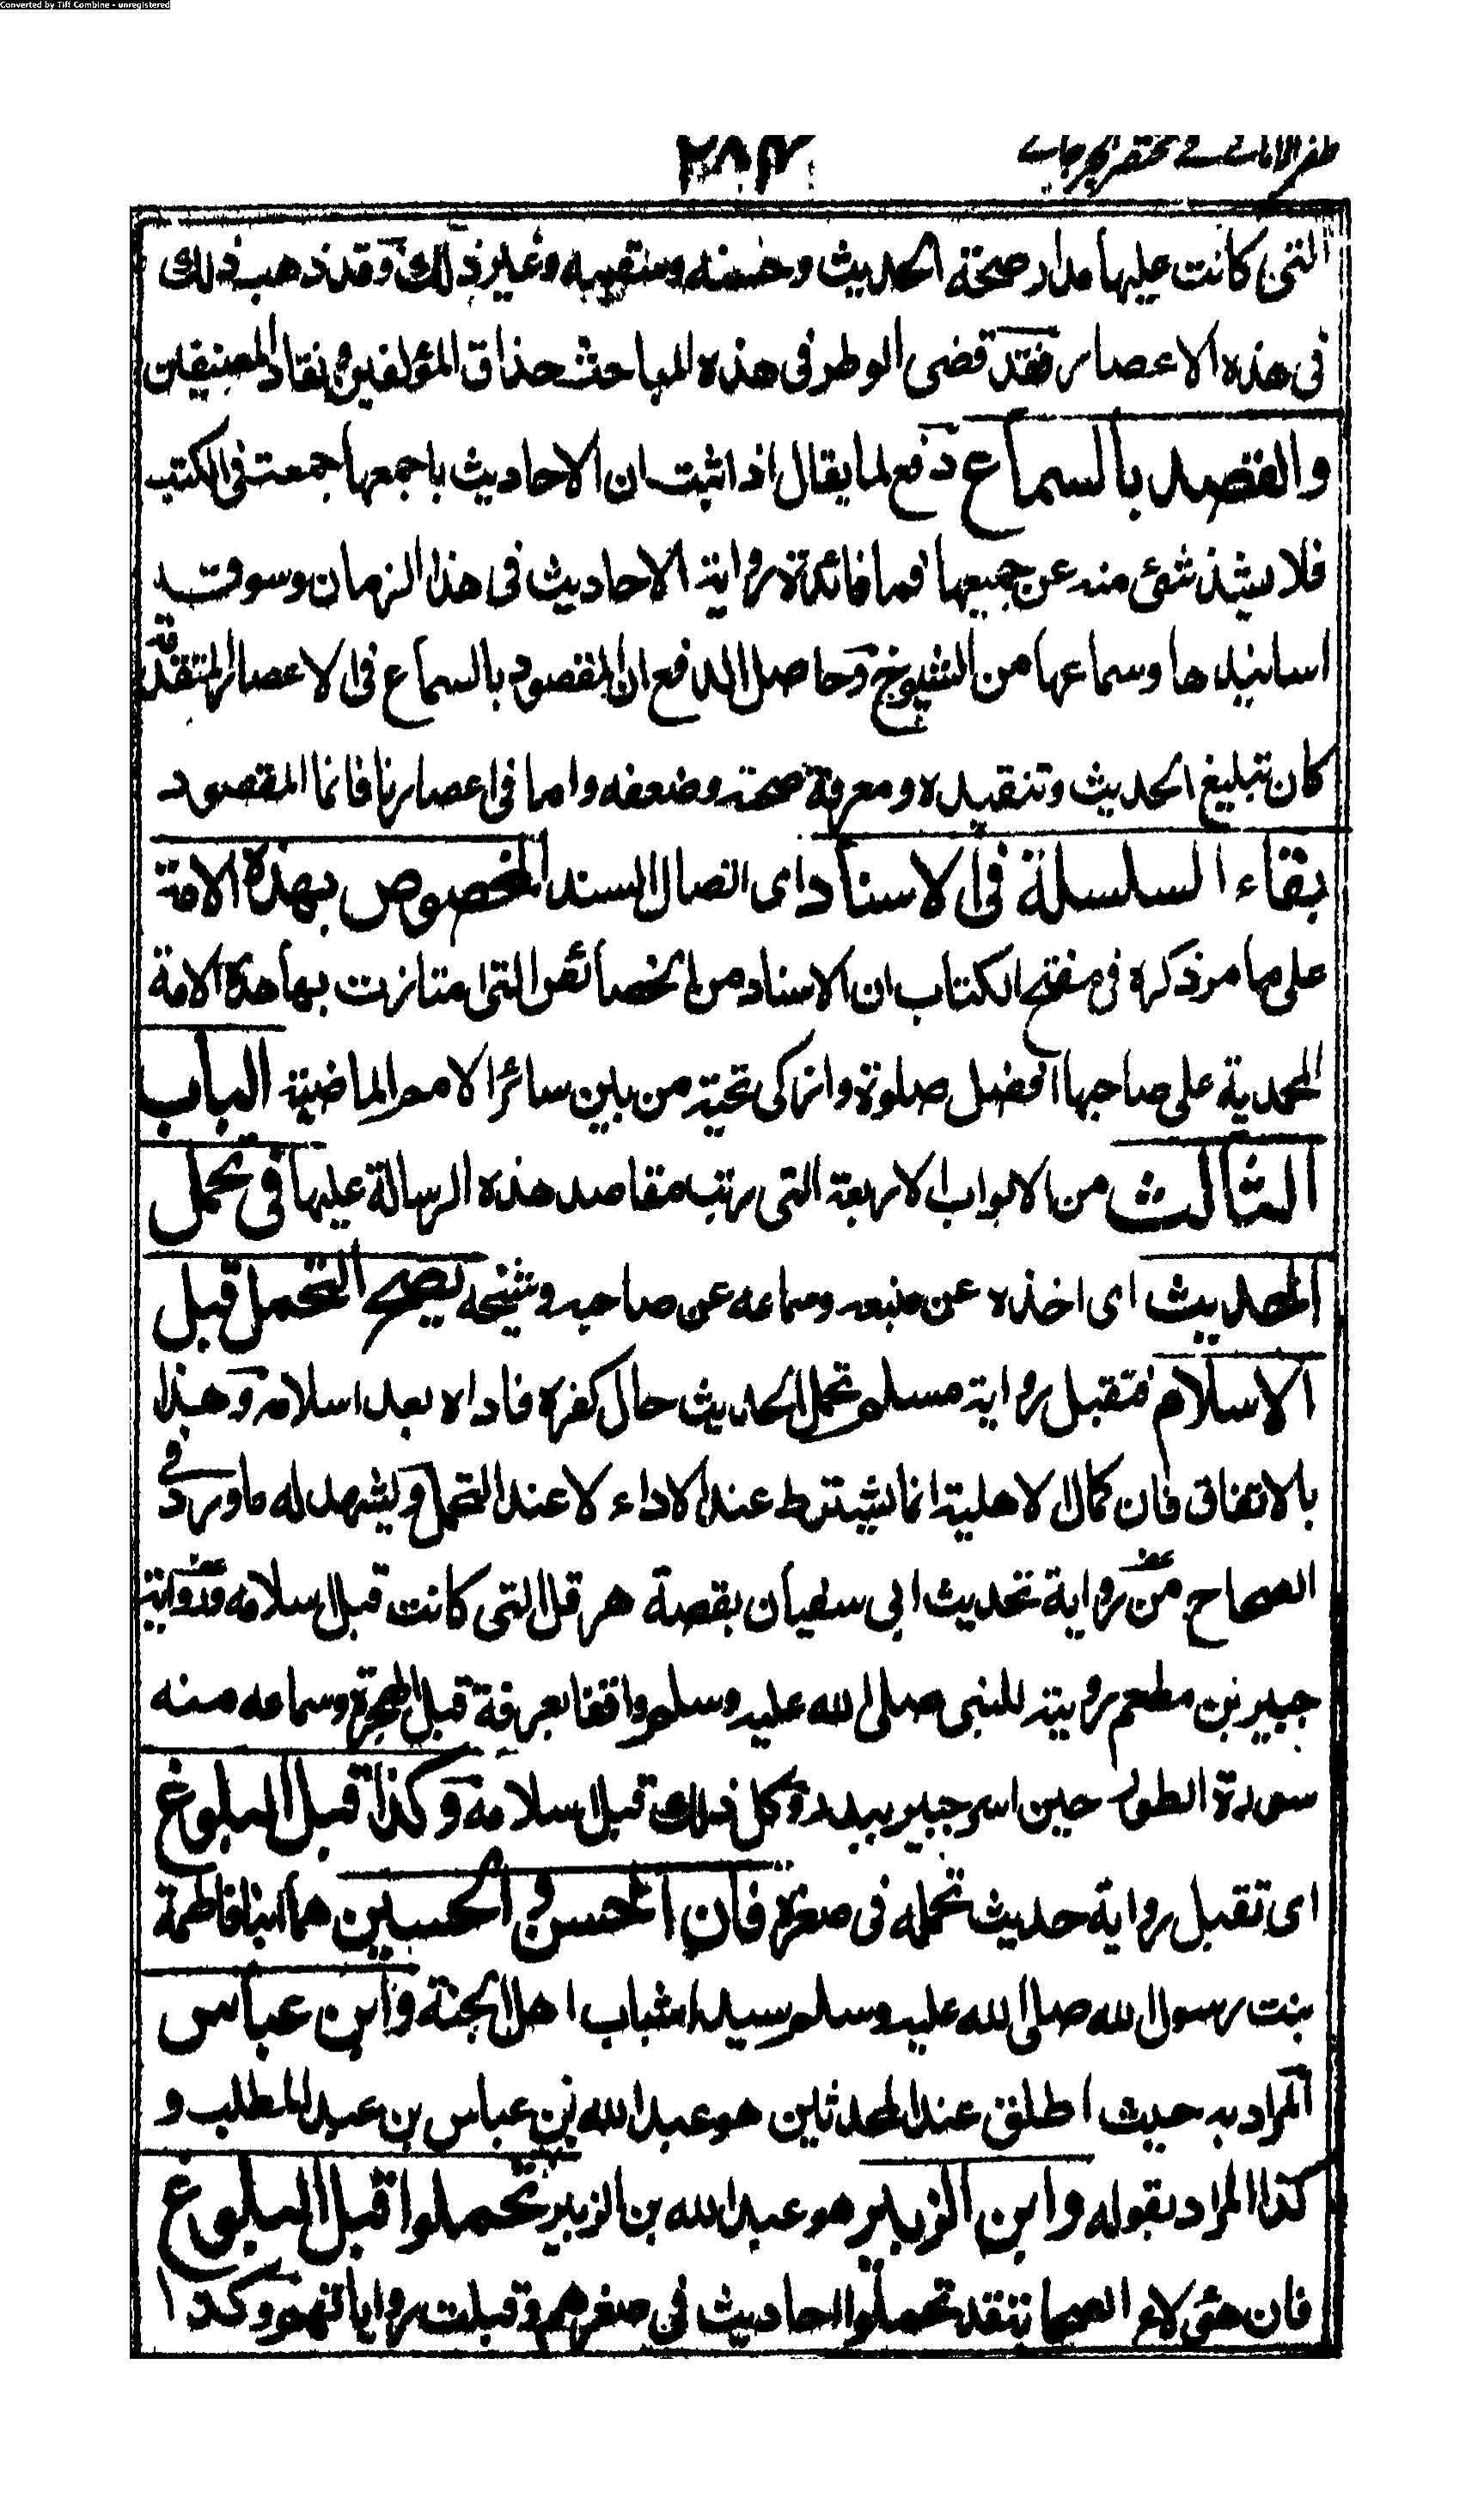 Converted by Tiff Combine - unregistered
ظفر الامانے فے مختصر الجرجانے
٢٨٤
التى كانت عليها مدار صحة الحديث وحسنه وسقيمه وغير ذلك وقد ذهب ذلك
فى هذه الاعصار فقد قضى الوطر فى هذه المباحث حذاق المؤلفين ونقاد المصنفين
والقصد بالسماع دفع لما يقال اذا ثبت ان الاحاديث باجمعها جمعت فى الكتب
فلا يشذ شئ منه عن جميعها فما فائدة رواية الاحاديث فى هذا الزمان وسوق
اسانيدها وسماعها من الشيوخ وحاصل الدفع ان المقصود بالسماع فى الاعصار المتقدمة
كان تبليغ الحديث وتنقيده ومعرفة صحته وضعفه واما فى اعصارنا فانما المقصود
بقاء السلسلة فى الاسناد اى اتصال السند المخصوص بهذه الامة
على ما مر ذكره فى مفتح الكتاب ان الاسناد من الخصائص التى امتازت بها هذه الامة
المحمدية على صاحبها افضل صلوة وازكى تحية من بين سائر الامم الماضية الباب
الثالث من الابواب الاربعة التى رتب مقاصد هذه الرسالة عليها فى تحمل
الحديث اى اخذه عن منبعه وسماعه عن صاحبه وشيخه يصح التحمل قبل
الاسلام فتقبل رواية مسلم تحمل الحديث حال كفره فاداه بعد اسلامه وهذا
بالاتفاق فان كمال الاهلية انما يشترط عند الاداء لا عند التحمل ويشهد له ما ورد فى
الصحاح من رواية تحديث ابى سفيان بقصة هرقل التى كانت قبل اسلامه ورواية
جبير بن مطعم رويته للنبى صلى الله عليه وسلم واقفا بعرفة قبل الهجرة وسماعه منه
سورة الطور حين اسر جبير ببدر وكل ذلك قبل اسلامه وكذا قبل البلوغ
اى تقبل رواية حديث تحمله فى صغره فان الحسن والحسين هما ابنا فاطمة
بنت رسول الله صلى الله عليه وسلم سيدا شباب اهل الجنة وابن عباس
المراد به حيث اطلق عند المحدثين هو عبد الله بن عباس بن عبد المطلب و
كذا المراد بقوله وابن الزبير هو عبد الله بن الزبير تحملوا قبل البلوغ
فان هؤلاء الصحابة قد تحملوا الحاديث فى صغرهم وقبلت رواياتهم وكذا